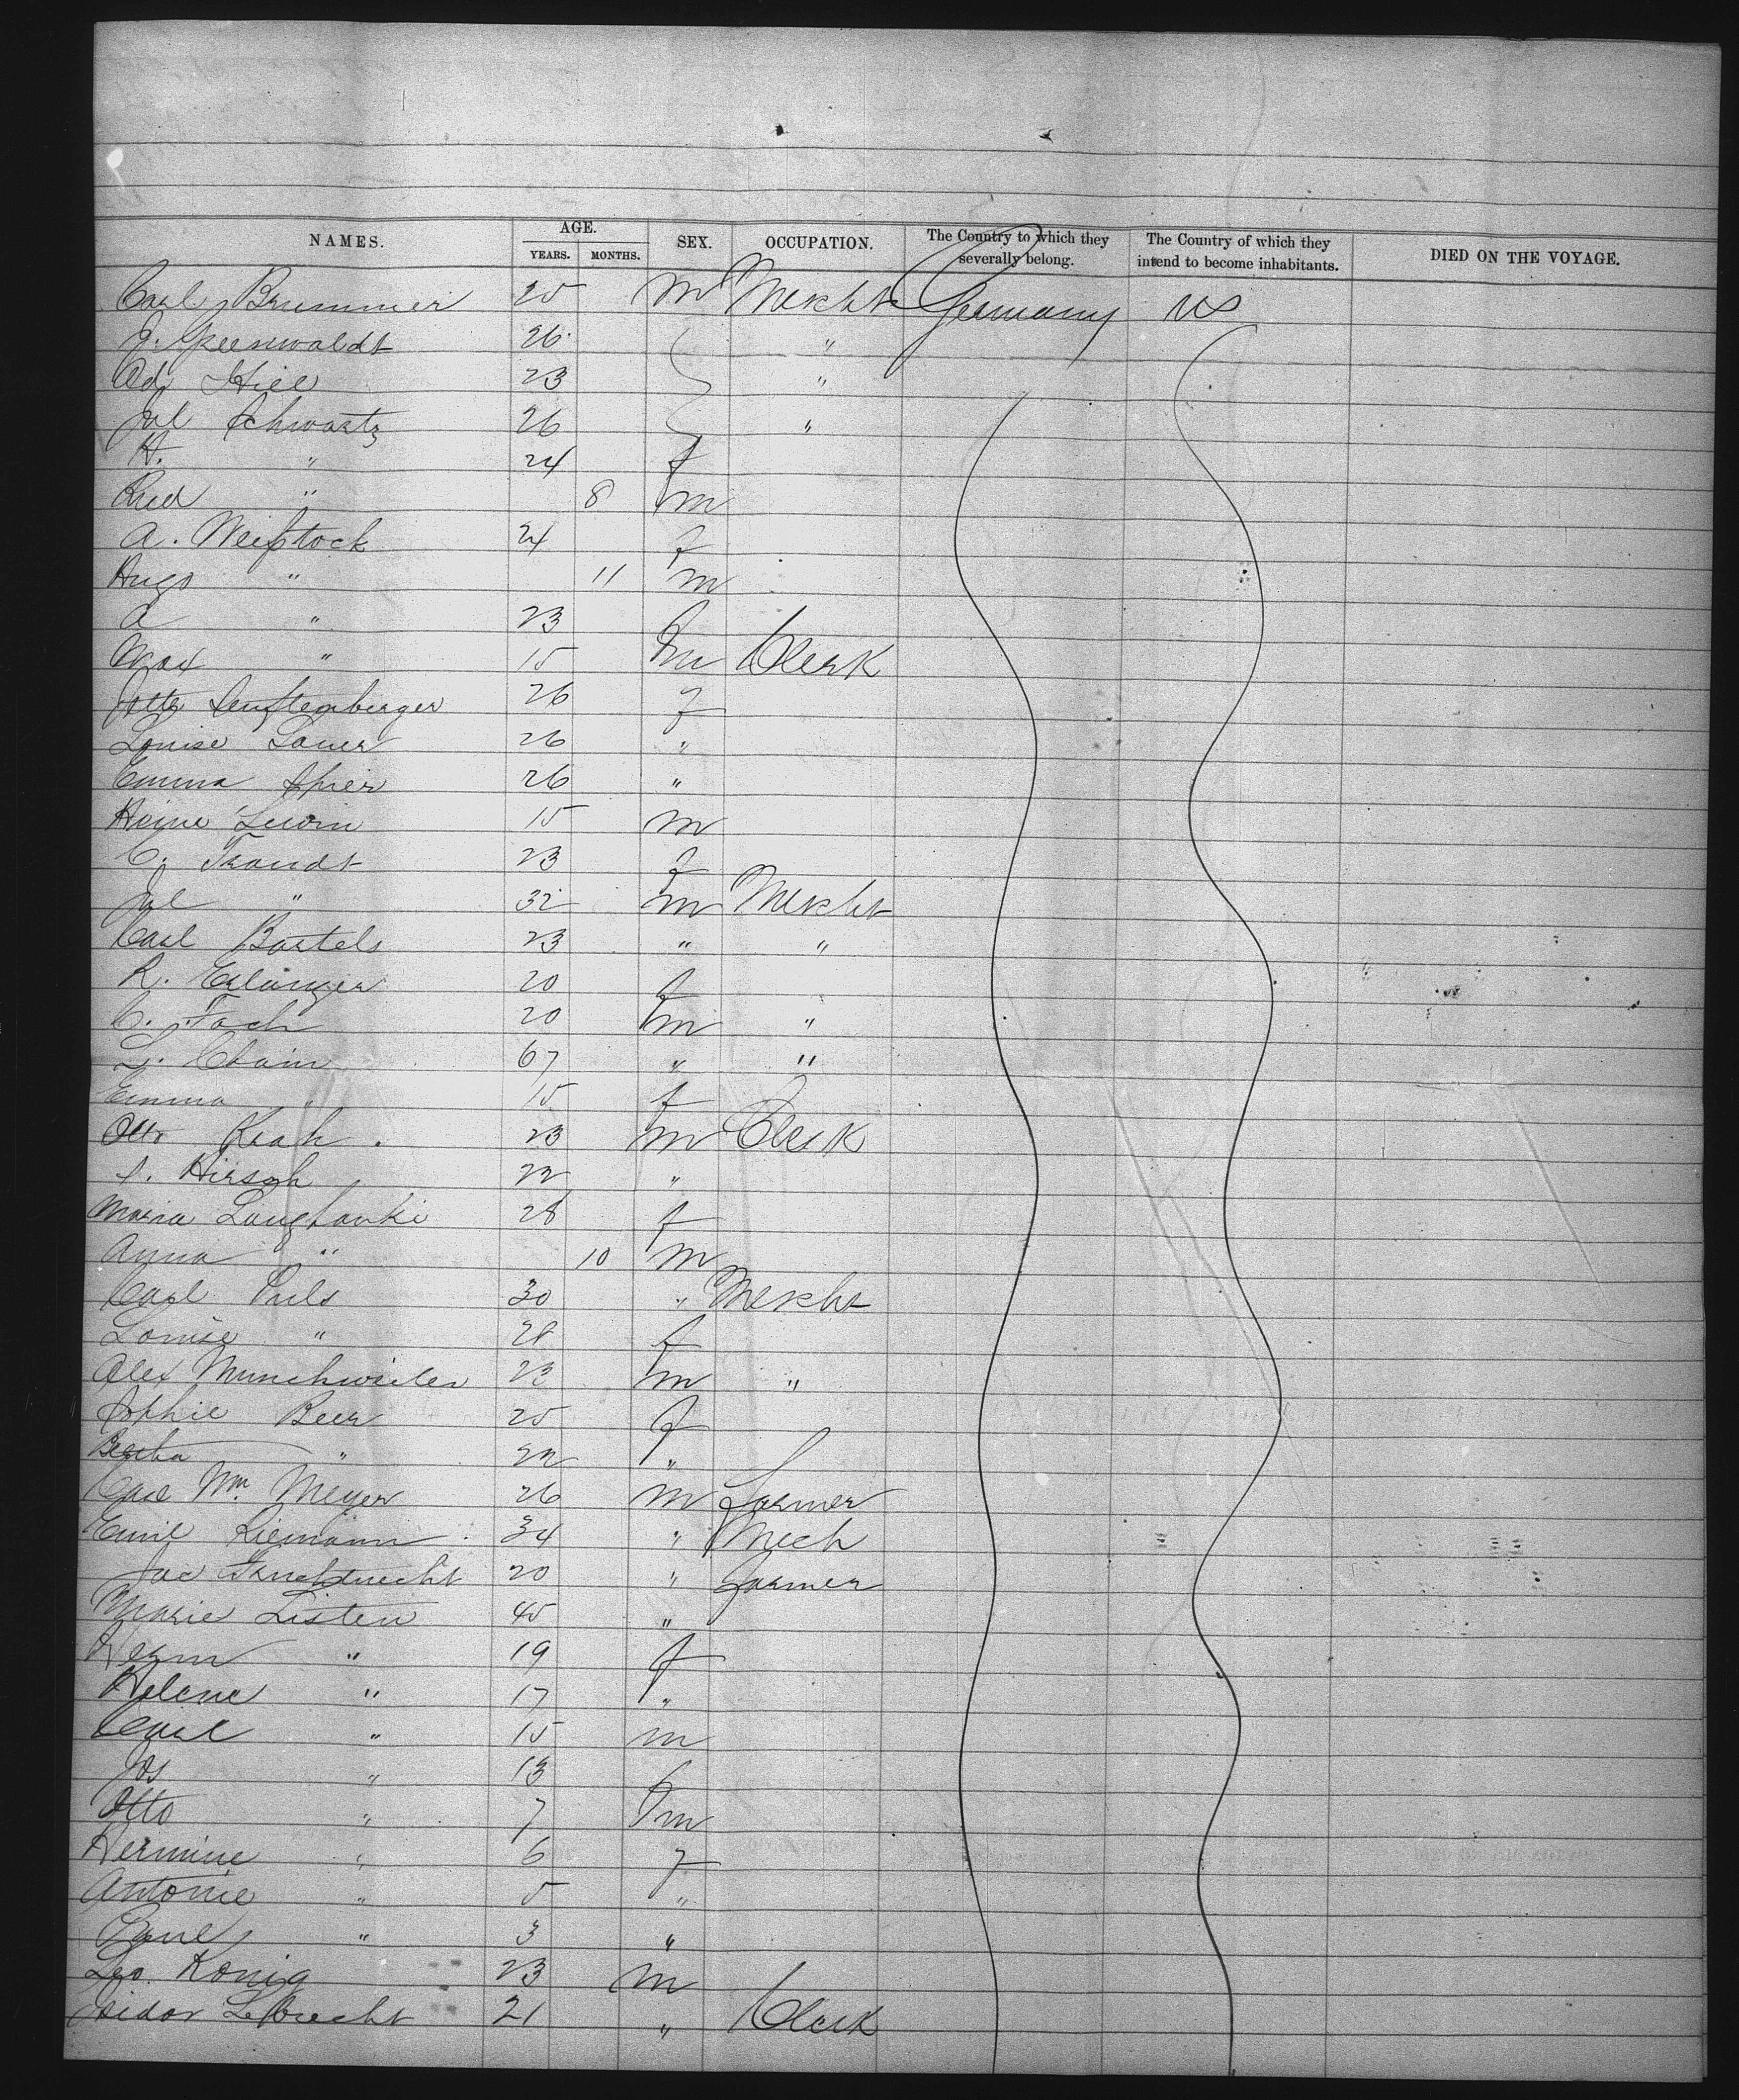 NAMES. AGE. YEARS. MONTHS. SEX. OCCUPATION. The Country to which they severally belong. The Country of which they intend to become inhabitants. DIED ON THE VOYAGE.
Carl Brummer 25 m Mercht Germany US
J. Greenwaldt 26 "
Ad. 23 "
Jul Schwartz 26 "
H. " 24 f
" 8 m
A. Weißtock 24 f
Hugo " 11 m
A " 23
Max " 15 m Clerk
Senftenberger 26 f
Louise Lauer 26 "
Emma Spier 26 "
Heine Lewin 15 m
C. Trandt 23 f
Jul " 32 m Mercht
Carl Bartels 23 " "
R. Erlanger 20 f
C. Fach 20 m "
L. 67 " "
Emma " 15 f
Otto 23 m Clerk
S. Hirsch 22 "
Maria 28 f
Anna " 10 m
Carl Puls 30 " Mercht
Louise " 28 f
Alex Munchweiler 23 m "
Sophie Beer 25 f
Bertha " 22 "
Carl Wm. Meyer 26 m Farmer
Emil Riemann 34 " Mech
Jac 20 " Farmer
Marie Listen 45 "
Herm " 19 f
Helene " 17 "
Carl " 15 m
Jos " 13
Otto " 7 m
Hermine " 6 f
Antonie " 5 "
Paul " 3 "
Leo. Konig 23 m
Isidor Lebrecht 21 " Clerk